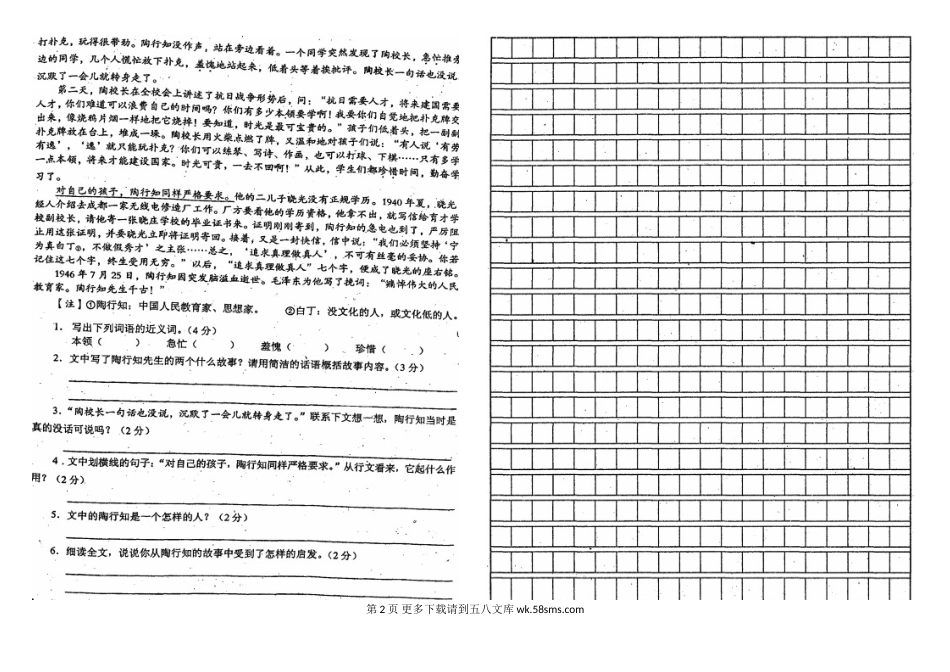 打扑克，玩得很带劲。陶行知没作声，站在旁边看着。一个同学突然发现了陶校长，急忙推旁
边的同学，几个人慌忙放下扑克，羞愧地站起来，低着头等着挨批评。陶校长一句话也没说，
沉默了一会儿就转身走了。
第二天，陶校长在全校会上讲述了抗日战争形势后，问：“抗日需要人才，将来建国需要
人才，你们难道可以浪费自己的时间吗？你们有多少本领要学啊！我要你们自觉地把扑克牌交
出来，像烧鸦片烟一样地把它烧掉！要知道，时光是最可宝贵的。”孩子们低着头，把一副副
扑克牌放在台上，堆成一垛。陶校长用火柴点燃了牌，又温和地对孩子们说：“有人说‘有劳
有逸’，‘逸’就只能玩扑克？你们可以练琴、写诗、作画，也可以打球、下棋……只有多学
一点本领，将来才能建设国家。时光可贵，一去不回啊！”从此，学生们都珍惜时间，勤奋学
习了。
对自己的孩子，陶行知同样严格要求。他的二儿子晓光没有正规学历。1940 年夏，晓光
经人介绍去成都一家无线电修造厂工作。厂方要看他的学历资格，他拿不出，就写信给育才学
校副校长，请他寄一张晓庄学校的毕业证书来。证明刚刚寄到，陶行知的急电也到了，严厉阻
止用这张证明，并要晓光立即将证明寄回。接着，又是一封快信，信中说：“我们必须坚持‘宁
为真白丁②，不做假秀才’之主张……总之，‘追求真理做真人’，不可有丝毫的妥协。你若
记住这七个字，终生受用无穷。”以后，“追求真理做真人”七个字，便成了晓光的座右铭。
1946 年 7 月 25 日，陶行知因突发脑溢血逝世。毛泽东为他写了挽词：“痛悼伟大的人民
教育家。陶行知先生千古！”
【注】①陶行知：中国人民教育家、思想家。 ②白丁：没文化的人，或文化低的人。
1. 写出下列词语的近义词。（4 分）
本领（ ） 急忙（ ） 羞愧（ ） 珍惜（ ）
2. 文中写了陶行知先生的两个什么故事？请用简洁的话语概括故事内容。（3 分）
3. “陶校长一句话也没说，沉默了一会儿就转身走了。”联系下文想一想，陶行知当时是
真的没话可说吗？（2 分）
4．文中划横线的句子：“对自己的孩子，陶行知同样严格要求。”从行文看来，它起什么作
用？（2 分）
5. 文中的陶行知是一个怎样的人？（2 分）
6. 细读全文，说说你从陶行知的故事中受到了怎样的启发。（2 分）
第 2 页 更多下载请到五八文库 wk.58sms.com